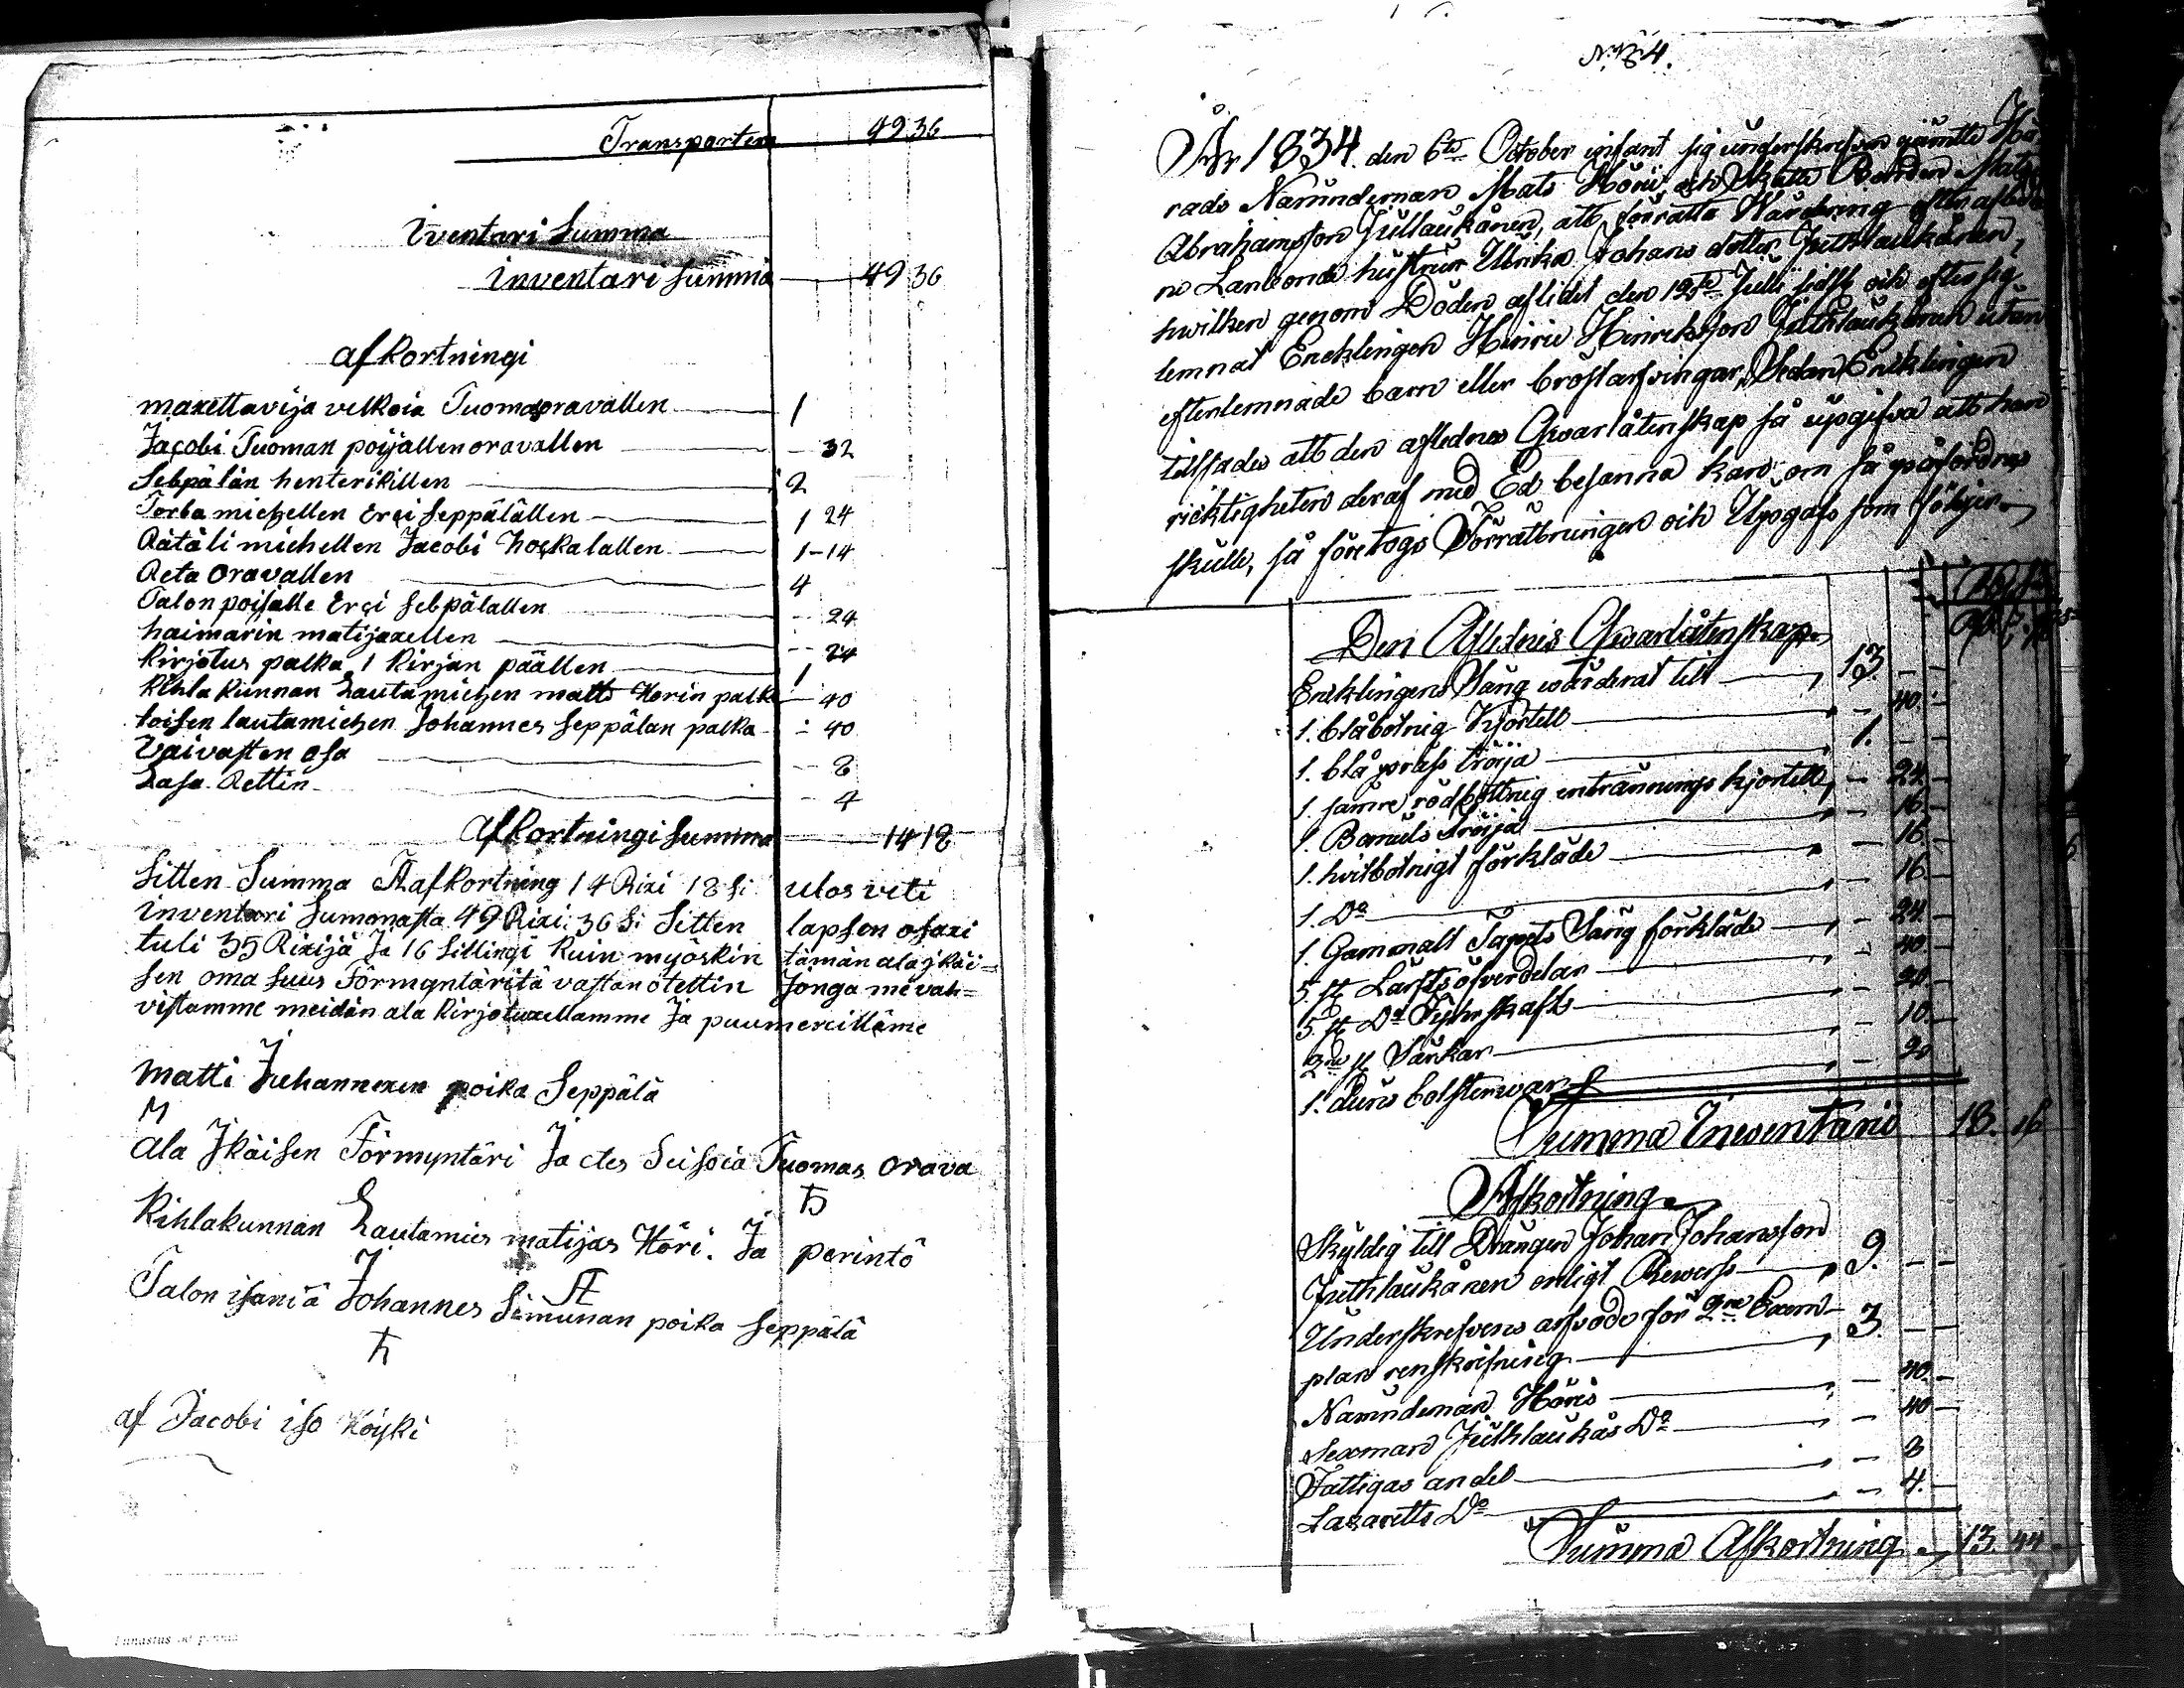 Transporten 49 36
iventari Summa
inventari Summa 49 36
afkortningi
maxettavija velkoia Tuomas oravallen 1
Jacobi Tuoman poijallen oravallen 32
Sebpälän henterikillen 2
Torba michellen Erçi Seppälällen 1 24
Rätäli michellen Jacobi hoskalallen 1-14
Reta oravallen 4
Talon poijalle Erçi Sebpälallen 24
haimarin matijaxellen 24
kirjotus palka 1 kirjan päällen 1
kihla kunnan Lautamiehen matts Horin palka 40
toisen lautamiehen Johannes Seppälan palka 40
Vaivasten osa 8
Lasa Rettin 4
afkortningi Summa 14 18
Sitten Summa Aafkortning 14 Rixi 18 Si ulos veti
inventaari Summasta 49 Rixi 36 Si Sitten lapsen osaxi
tuli 35 Rixijä Ja 16 Sillingi kuin myöskin tämän ala jkäi=
sen oma Suus Förmyntäritä vastan otettin Jonga me vah=
vistamme meidän ala kirjotuxellamme Ja puumercillämme
Matti Juhannexen poika Seppälä
M
Ala Jkäisen Förmyntäri Ja etes Seisoia Tuomas Orava
Kihlakunnan Lautamies matijas Höri. Ja perintö
Talon isaniä Johannes Simunan poika Seppälä
af Jacobi iso Köyki
N:o 84.
År 1834 den 6te October infant sig underskrefven jämte Hä-
rads Nämndeman Mats Höri, och Skatte Bonden Mats
Abrahamsson Jullaukånen, att förrätta Wärdering efter aflid
ne Lanbonde hustrun Ulrika Johans dotter Juthlaukånen,
hwilken genom Döden aflidit den 12te Julii sidst och efter sig
lemnat Encklingen Hinric Hinriksson Juthlaukånen utan
efterlemnade barn eller bröstarfvingar. Sedan Encklingen
tillsades att den aflednes Qwarlåtenskap så upgifva att han
ricktigheten deraf med Ed besanna kan om så påfordras
skulle, så företogs Förrättningen och Upgafs som följer
Den Aflednes Qwarlåtenskap
Encklingens Säng wärderat till 13.
1. blåbotnig Kjortell 40.
1. blå präss tröija 1.
1. sämre rödbottnig intrännings kjortell 24.
1. Bomuls tröija 16.
1. hvitbotnigt förkläde 16.
1. Do 16.
1. Gammalt Tapets Säng förkläde 24.
5 st Lärfts öfverdelar 40.
5 st Do 20.
2ne st Särkar 10.
1. duns bolsterwar 20
Summa Inventarii 18. 16
Afkortning
Skyldig till Drängen Johan Johansson
Juthlaukånen enligt Rewerss 9.
Underskrefvens arfvode för 2ne Exem-
plars renskrifning 3.
Nämndeman Höris 40.
Sexman Juthlaukås Do 40
Fattigas andel 8
Lazaretts Do 4.
Summa Afkortning 13 44